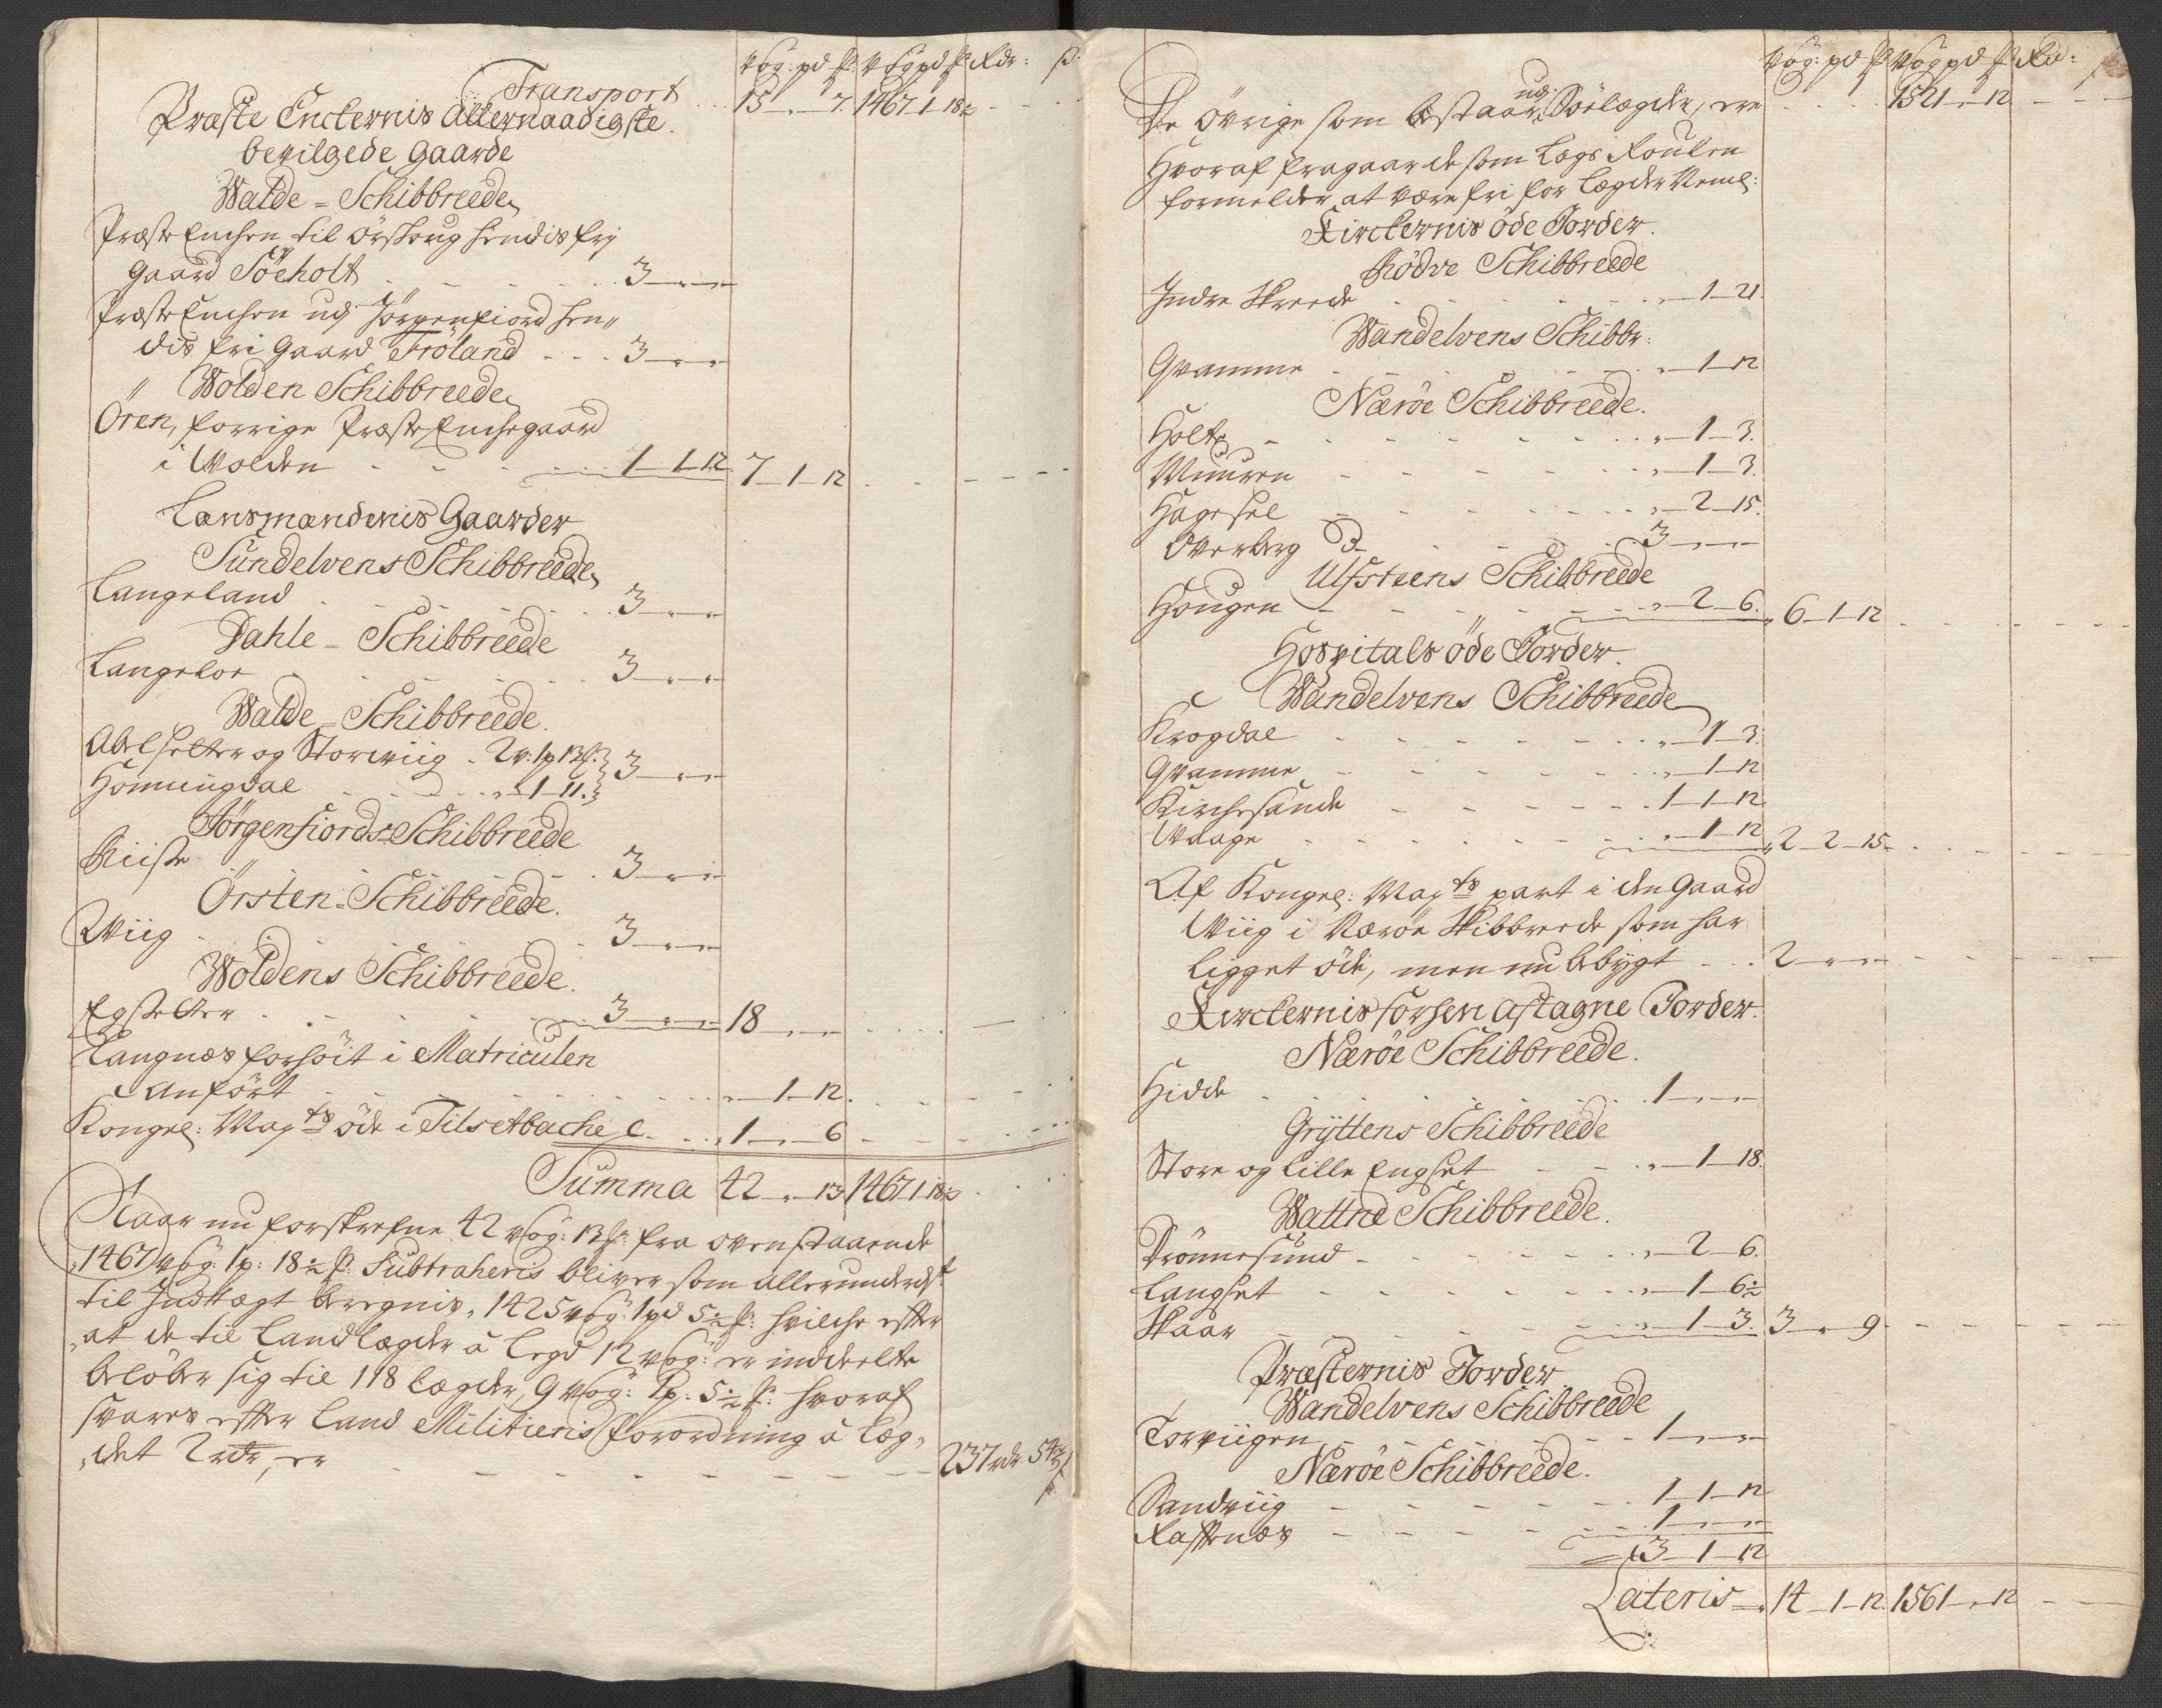 Vog: pd ℔: Vog pd ℔ Rdr: ß.
Transport 15 „ 7. 1467 1 18½
Præste Enckernis Allernaadigste
bevilgede Gaarde
Walde-Schibbreede
Præste Enchen til Örskoug hendis frj
gaard Söeholt 3 „ „
Præste Enchen udj Jörgenfiord hen„
dis fri Gaard Fröland 3 „ „
Wolden Schibbreede
Ören, forrige Præste Enchegaard
i Wolden 1 1 12 7 1 12
Lænsmændenis Gaarder
Sundelvens Schibbreede
Langeland 3 „ „
Dahle-Schibbreede
Langeloe 3 „ „
Walde-Schibbreede.
Abelsetter og Storviig 2 v: 1 p 13 ℔.
Honningdal „ 1 11. 3 „ „
Jörgenfiords-Schibbreede
Riiste 3 „ „
Örsten-Schibbreede.
Wiig 3 „ „
Woldens Schibbreede.
Egsetter 3 „ „ 18 „ „
Langnæs forhöit i Matriculen
Anfört „ 1 12.
Kongel: May ts öde i Tilsetbache 1 „ 6
Summa 42 „ 13 1467 1 18½
Naar nu forskrefne 42 vog: 13 ℔ fra ovenstaaende
1467 vog: 1 p: 18½ ℔. Subtraheris bliver som allerunderdst
til Indtægt beregnis, 1425 vog 1 pd 5½ ℔: hvilche efter
at de til Landlægder à Legd 12 vog: er inddeelte
belöber sig til 118 lægder, 9 vog: 1 p: 5½ ℔: hvoraf
svares efter Land Militiens forordning à Læg„
det 2 rdr, er 237 rdr 54
Vog: pd ℔ Vog pd ℔ Rd: ß
De övrige som bestaar udj Söelægder, ere 1521 „ 12
Hvoraf fragaar de som Lægs Roullen
formelder at være fri for Lægder Neml:
Kirckernis öde Jorder.
Rödve Schibbreede
Indre Skreede „ 1 21.
Wandelvens Schibbr:
Qvamme „ 1 12
Næröe Schibbreede.
Holte „ 1 3.
Muuren „ 1 3.
Hagesel „ 2 15.
Overberg 3 „ „
Ulfsteens Schibbreede
Hougen „ 2 6. 6 1 12
Hospitals öde Jorder.
Wandelvens Schibbreede
Krogdal „ 1 3.
Qvamme „ 1 12
Kirchesande 1 1 12
Waage „ 1 12 2 2 15
Af Kongel: May ts part i den Gaard
Wiig i Næröe Skibbreede som har
ligget öde, men nu bebygt 2 „ „
Kirckernis forhen aftagne Jorder.
Næröe Schibbreede.
Hidde 1 „ „
Gryttens Schibbreede
Store og Lille Engset „ 1 18.
Wattne Schibbreede.
Drönnesund „ 2 6.
Langset „ 1 6½
Skaar „ 1 3. 3 „ 9
Præsternis Jorder
Wandelvens Schibbreede
Torviigen 1 „ „
Næröe Schibbreede.
Sandviig 1 1 12
Raffnæs 1 „ „
3 1 12
Lateris 14 1 12. 1561 „ 12